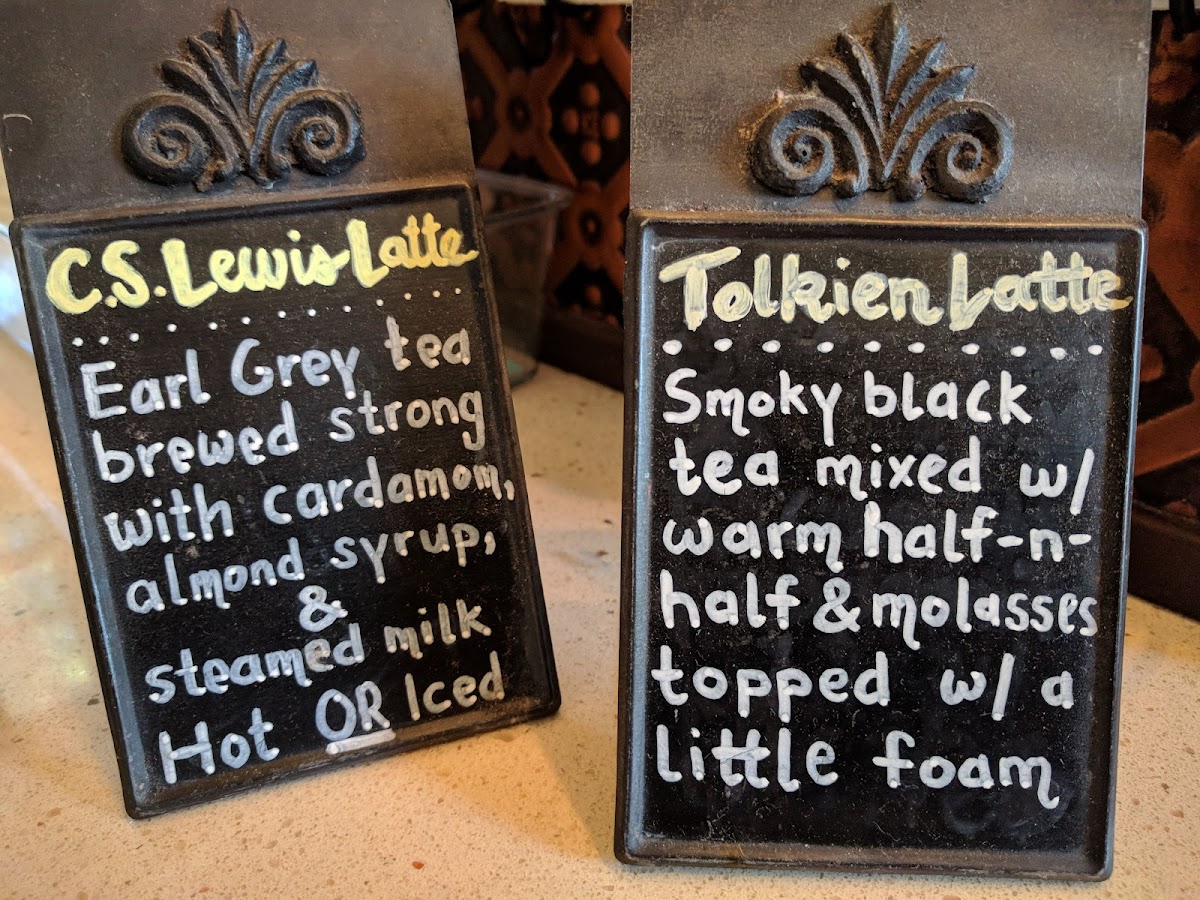 C.S. Lewis Latte
Earl Grey tea
brewed strong
with cardamom,
almond syrup,
&
steamed milk
Hot OR Iced
Tolkien Latte
Smoky black
tea mixed w/
warm half-n-
half & molasses
topped w/ a
little foam